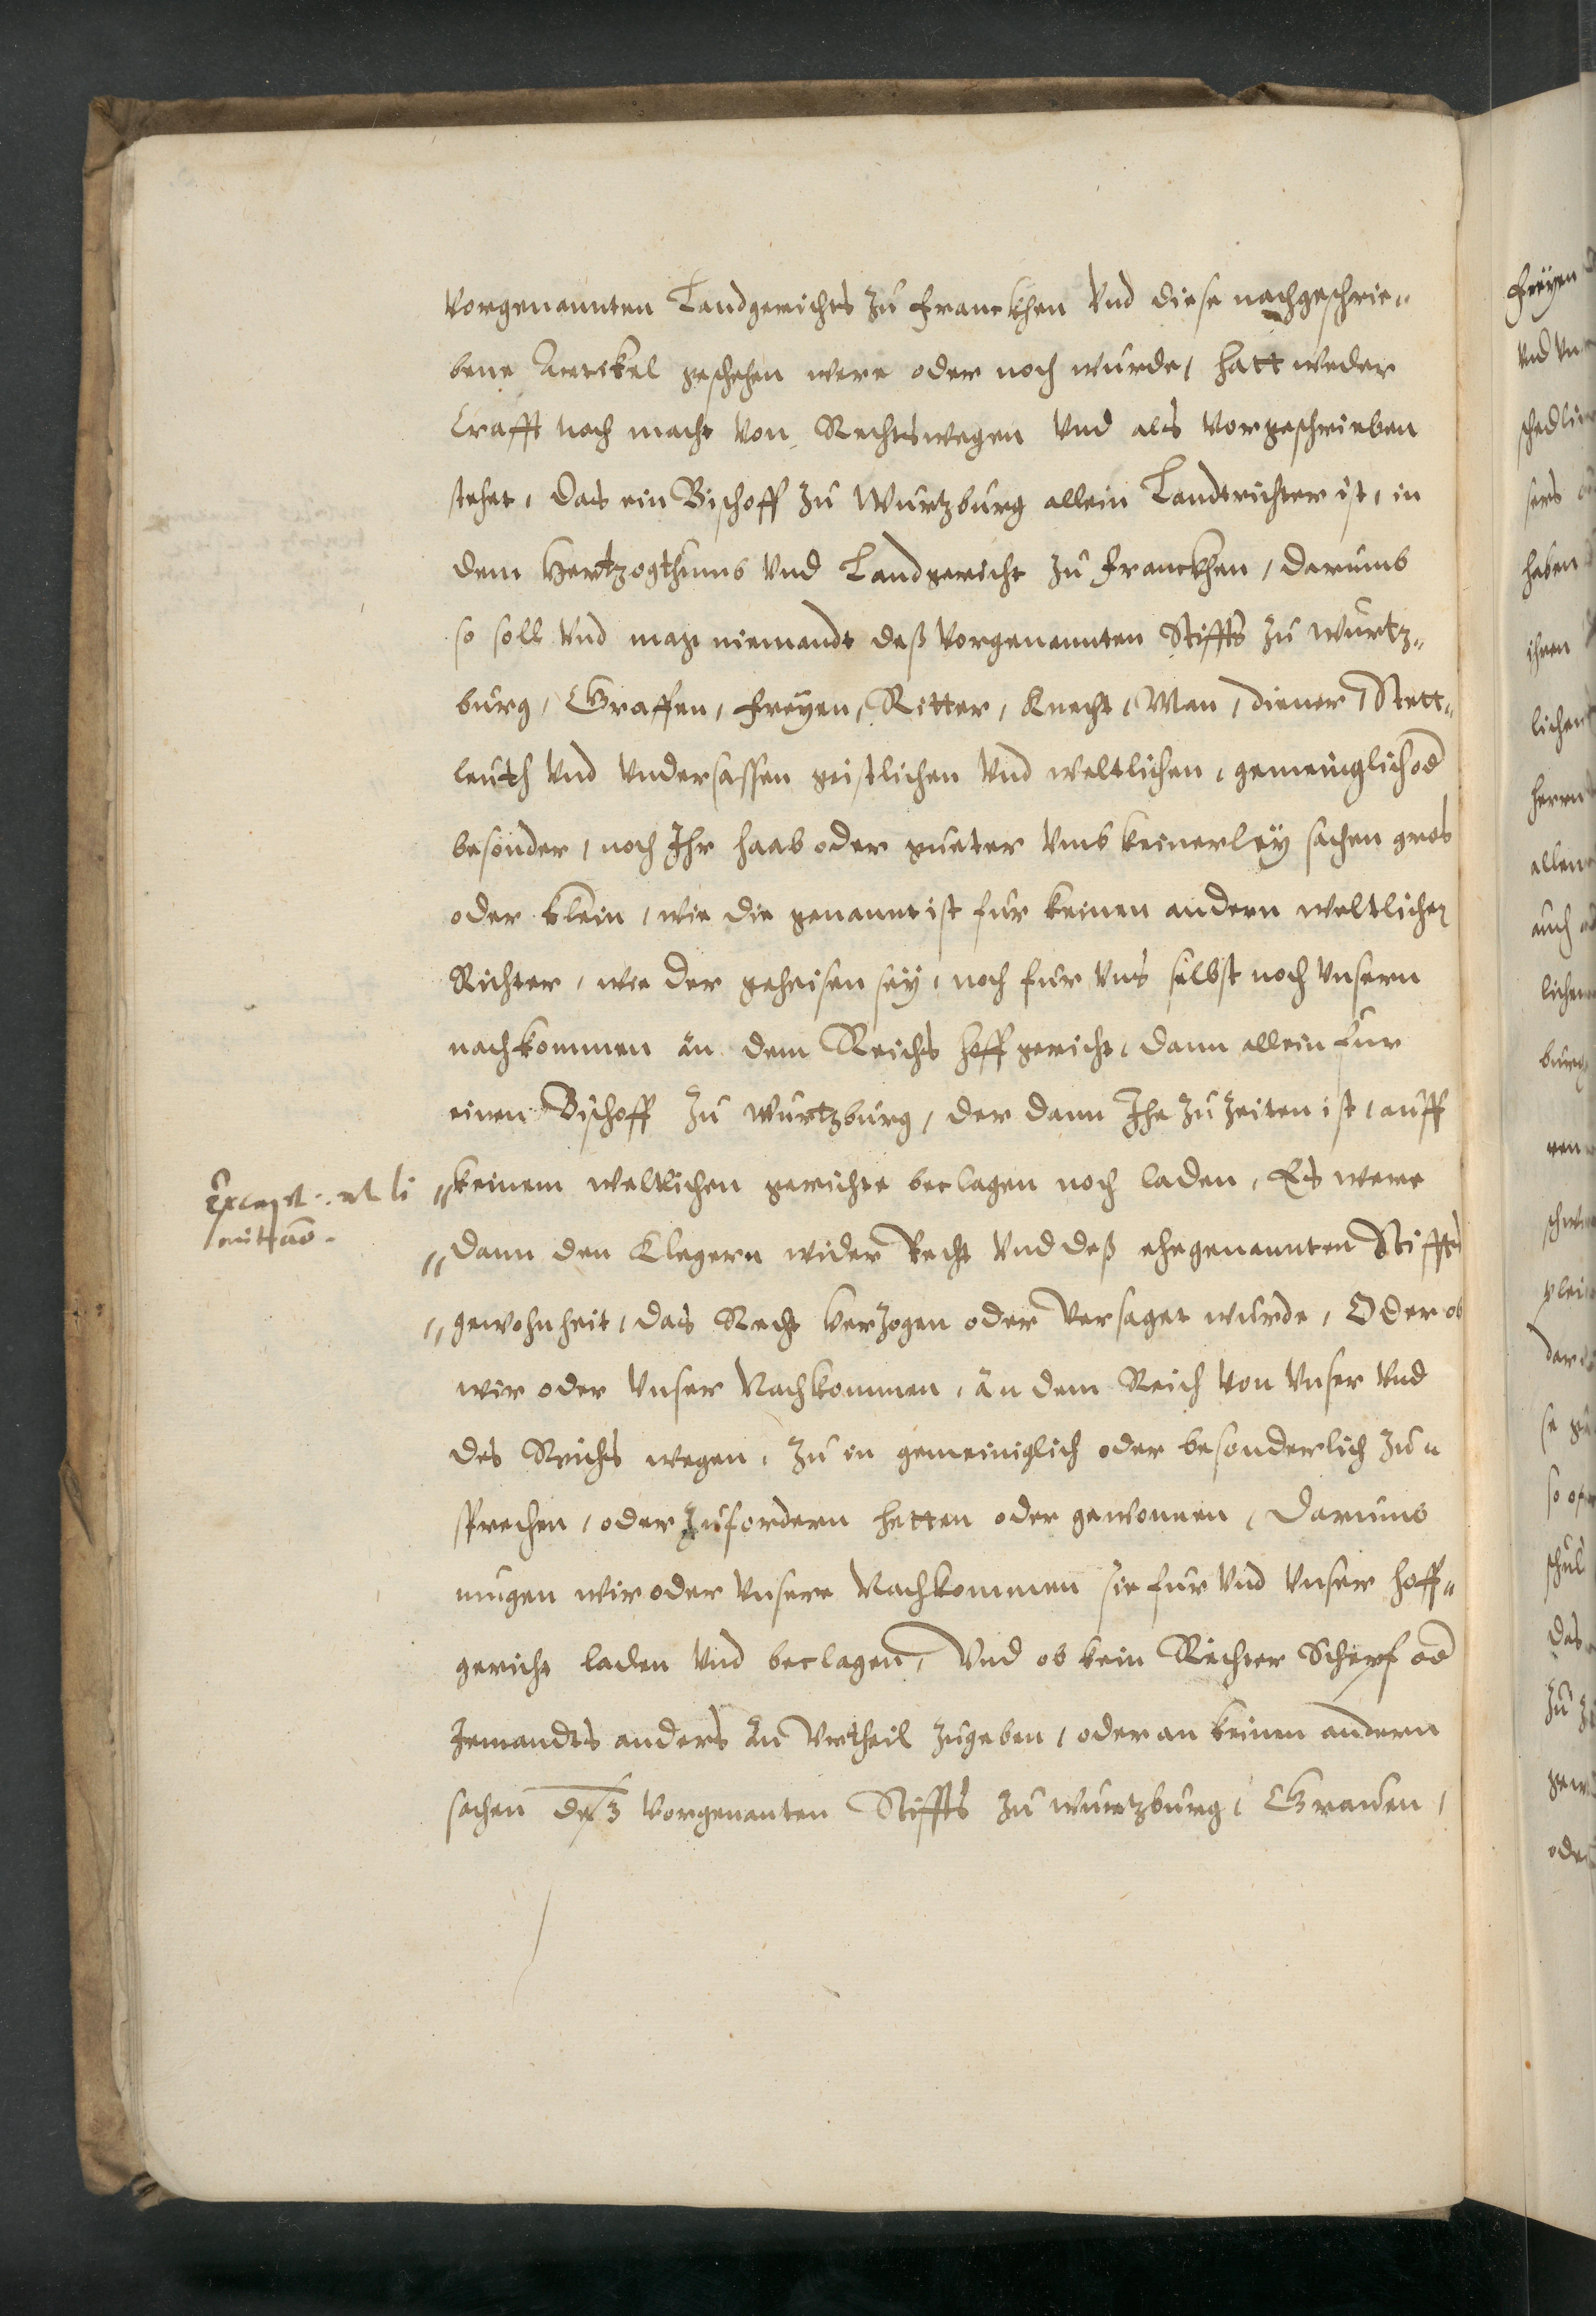 vorgenannten Landgerichts zu Franckhen vnd diese nachgeschrie„
bene Artickel geschehen were oder noch wurde, hatt weder
Crafft noch macht von Rechtswegen vnd als vorgeschrieben
stehet, Das ein Bischoff zu Wurtzburg allein Landtrichter ist, in
dem Hertzogthumb vnd Landgericht zu Franckhen, darumb
so soll vnd mag niemandt deß vorgenannten Stiffts zu Wurtz„
burg, Graffen, Freyen, Ritter, Knecht, Man, diener, Stett„
leuth vnd vndersassen geistlichen vnd weltlichen, gemeinglich od
besonder, noch Ihr haab oder gueter vmb keinerley sachen gros
oder klein, wie die genannt ist fur keinen andern weltlichen
Richter, wie der geheisen sey, noch fur vns selbst noch vnsern
nachkommen an dem Reichs hoffgericht, dann allein fur
einen Bischoff zu Wurtzburg, der dann Ihe zu Zeiten ist, auff
„keinem weltlichen gerichte beclagen noch laden, Es were
Except. li
mitatio.
„dann den Klegern wider Recht vnd deß ehegenannten Stiffts
„gewohnheit, das Recht verzogen oder versaget wurde, Oder ob
wir oder vnser Nachkommen, an dem Reich von vnser vnd
des Reichs wegen, zu in gemeiniglich oder besonderlich zu„
sprechen, oder zufordern hetten oder gewonnen, Darumb
mugen wir oder vnsere Nachkommen sie fur vnd vnser hoff„
gericht laden vnd beclagen, Vnd ob kein Richter Schepf od
Jemandts anders an Vrtheil zugeben, oder an keinen andern
sachen deß vorgenanten Stiffts zu Wurtzburg, Grauen,
Freyen
vnd
schedli
sers
haben
ihren
lichen
herrn
allen
auch
lichen
burg
dar
so
schul
das
zu
oder